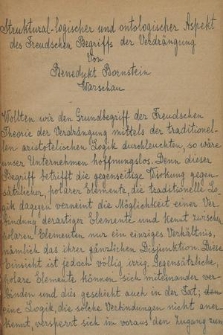 Struktural-logischer und ontologischer Aspekt
des Freudschen Begriffs der Verdrängung
Von
Benedykt Bornstein
Warschau
Wollten wir den Grundbegriff der Freudschen
Theorie der Verdrängung mittels der traditionel-
len aristotelischen Logik durchleuchten, so wäre
unser Unternehmen hoffnungslos. Denn dieser
Begriff betrifft die gegenseitige Wirkung gegen-
sätzlicher, polarer Elemente, die traditionelle Lo-
gik dagegen verneint die Möglichkeit einer Ver-
bindung derartiger Elemente und kennt zwischen
polaren Elementen nur ein einziges Verhältnis,
nämlich das ihrer gänzlichen Disjunktion. Diese
Ansicht ist jedoch völlig irrig. Gegensätzliche,
polare Elemente können sich miteinander ver-
binden und dies geschieht auch in der Tat; denn
eine Logik, die solche Verbindungen nicht aner-
kennt, versperrt sich im voraus den Zugang zu